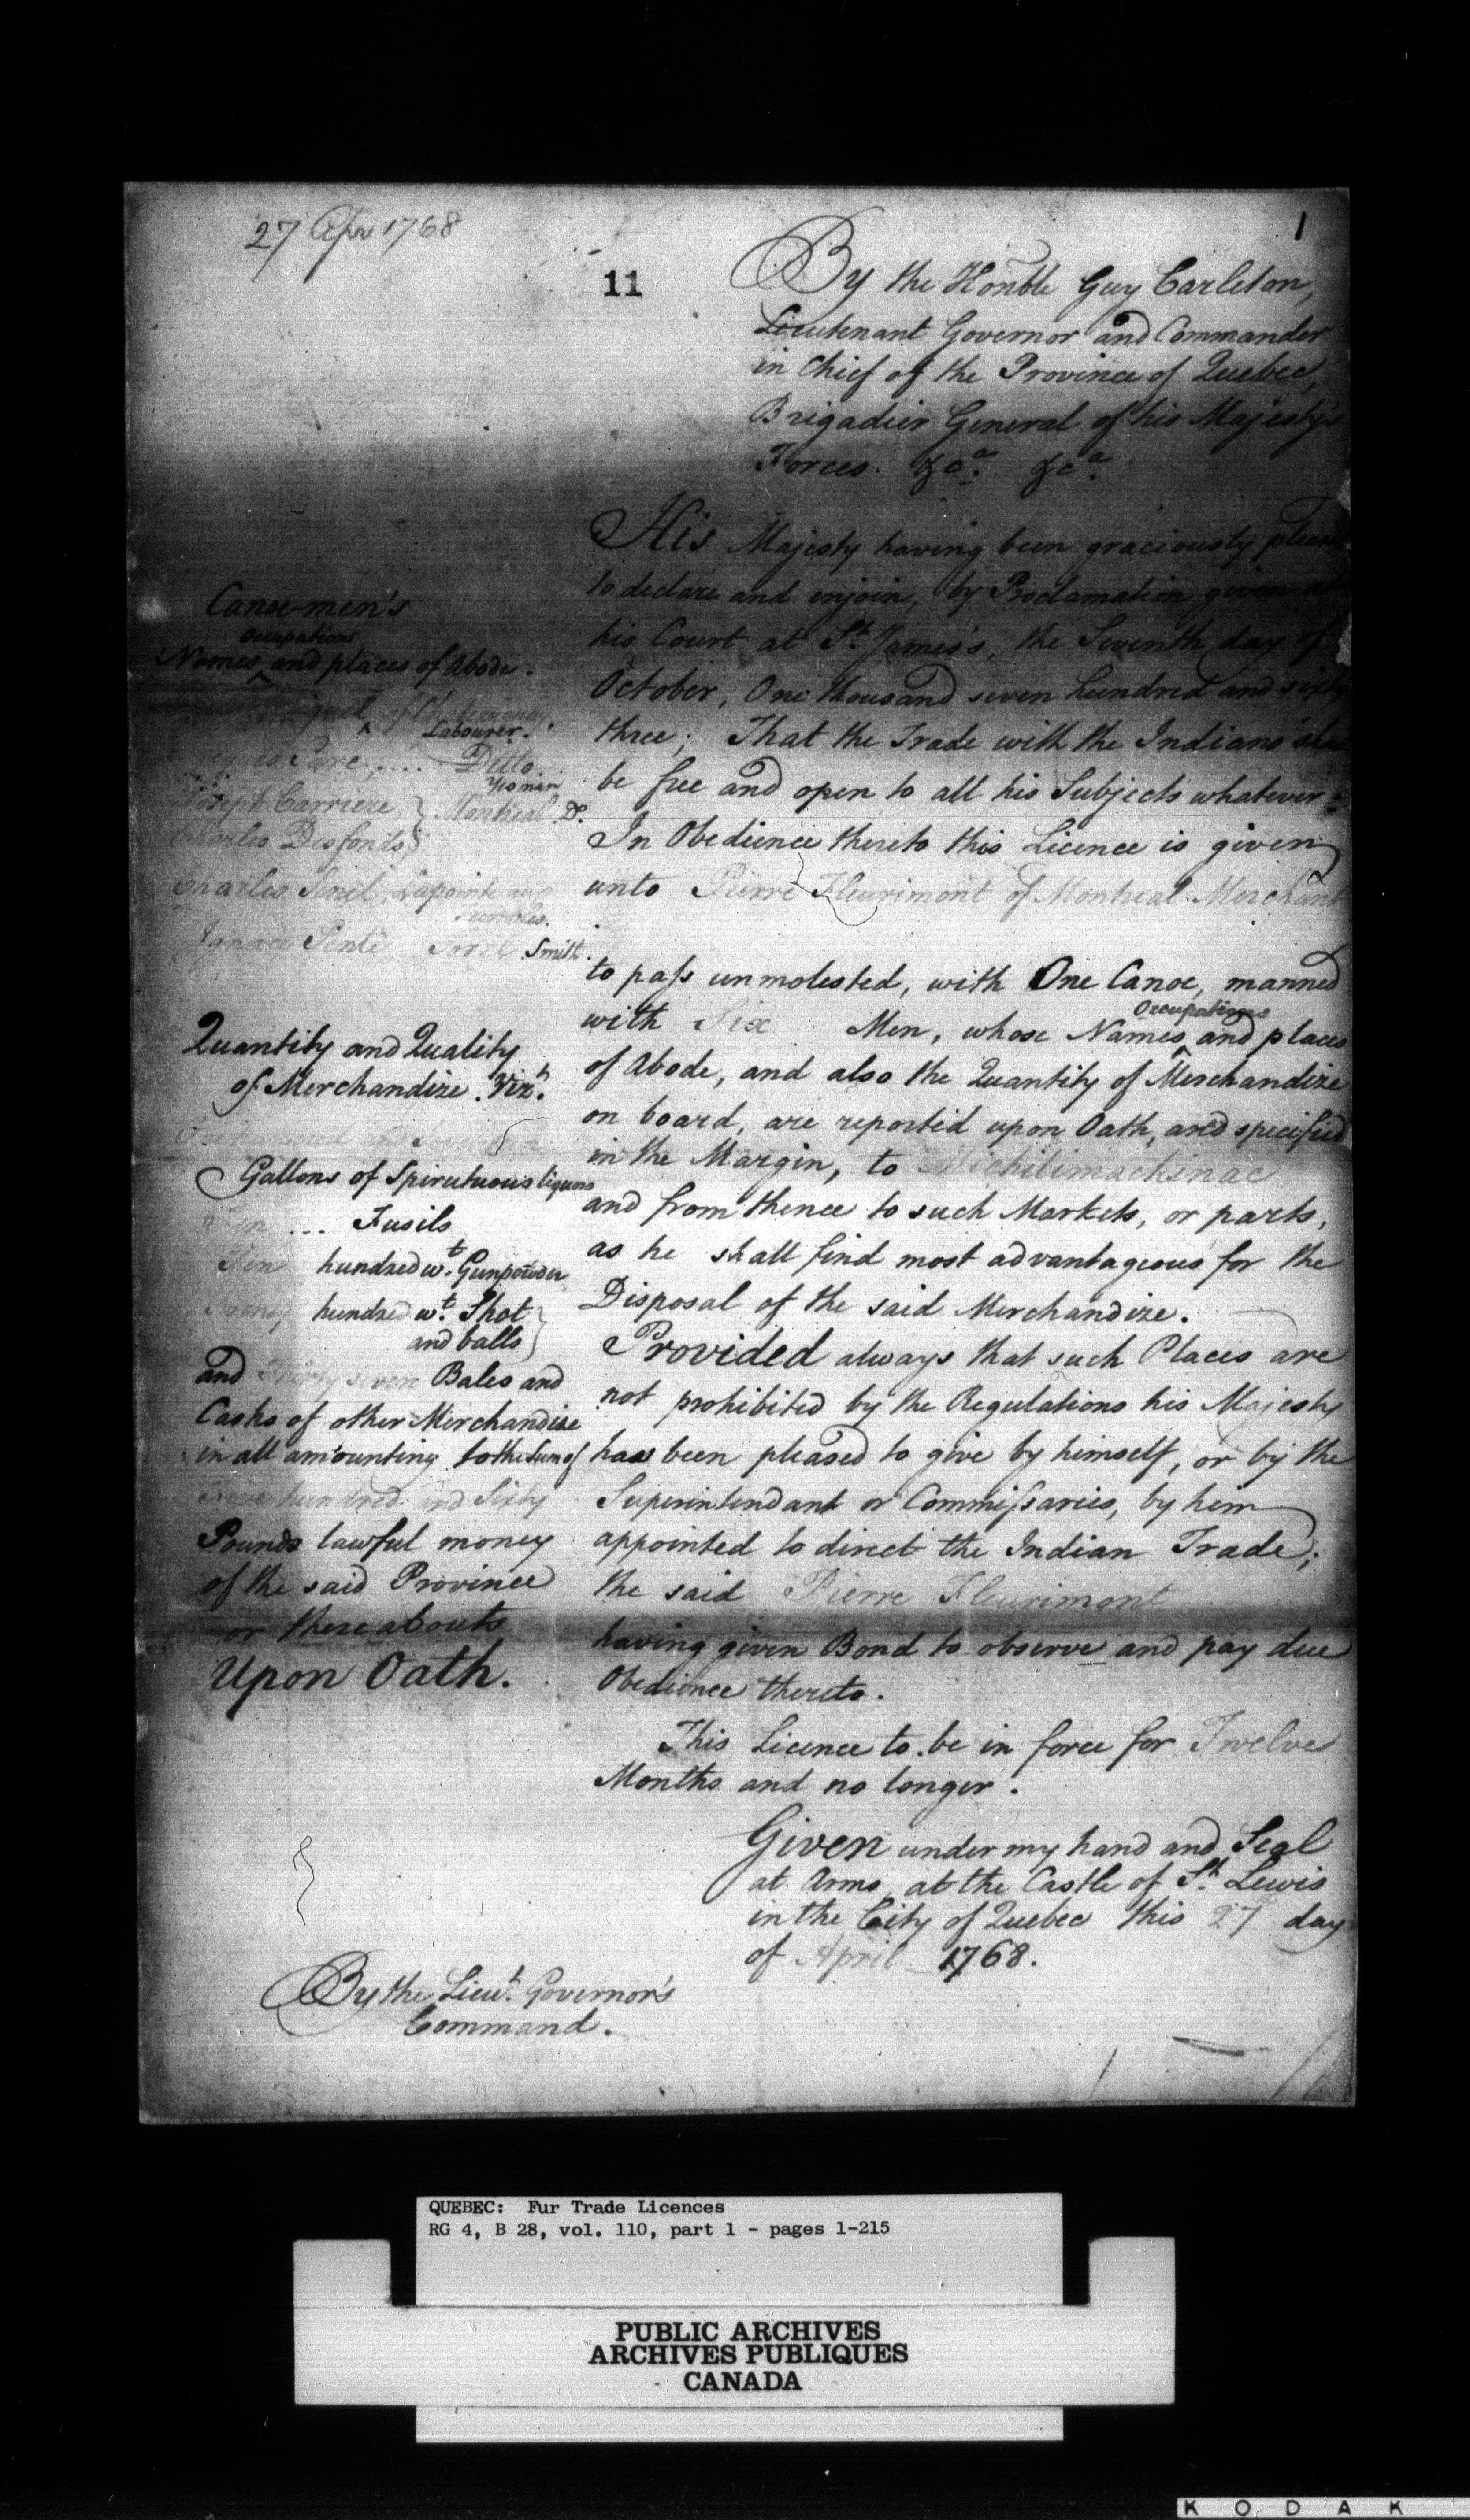 27 Apr 1768
1
11
By the Honble Guy Carleton,
Lieutenant Governor and Commander
in Chief of the Province of Quebec,
Brigadier General of his Majesty's
Forces. &ca. &ca.
His Majesty having been graciously pleased
to declare and enjoin, by Proclamation given at
his Court at St. James's, the Seventh day of
October, One thousand seven hundred and sixty
three; That the Trade with the Indians shall
be free and open to all his Subjects whatever:
In Obedience thereto this Licence is given
unto Pierre Fleurimont of Montreal Merchant
to pass unmolested, with One Canoe, manned
with Six Men, whose Names Occupations and places
of Abode, and also the Quantity of Merchandize
on board, are reported upon Oath, and specified
in the Margin, to Michilimackinac
and from thence to such Markets, or parts,
as he shall find most advantageous for the
Disposal of the said Merchandize.
Provided always that such Places are
not prohibited by the Regulations his Majesty
has been pleased to give by himself, or by the
Superintendant or Commissaries, by him
appointed to direct the Indian Trade;
the said Pierre Fleurimont
having given Bond to observe and pay due
Obedience thereto.
This Licence to be in force for Twelve
Months and no longer.
Given under my hand and Seal
at Arms, at the Castle of St. Lewis
in the City of Quebec this 27 day
of April 1768.
Canoe-men's
Occupations
Names and places of Abode.
Labourer.
Ditto
Yeoman
Joseph Carriere } Montreal Do.
Charles Desfonds
Charles
Ignace Smith.
Quantity and Quality
of Merchandize. Vizt.
Gallons of Spirutuous liquors
Ten ... Fusils
Ten hundred wt. Gunpowder
hundred wt. Shot
and balls
and Thirty seven Bales and
Casks of other Merchandize
in all amounting to the Sum of
hundred and Sixty
Pounds lawful money
of the said Province
or thereabouts
Upon Oath.
By the Lieut. Governor's
Command.
QUEBEC: Fur Trade Licences
RG 4, B 28, vol. 110, part 1 - pages 1-215
PUBLIC ARCHIVES
ARCHIVES PUBLIQUES
CANADA
KODAK